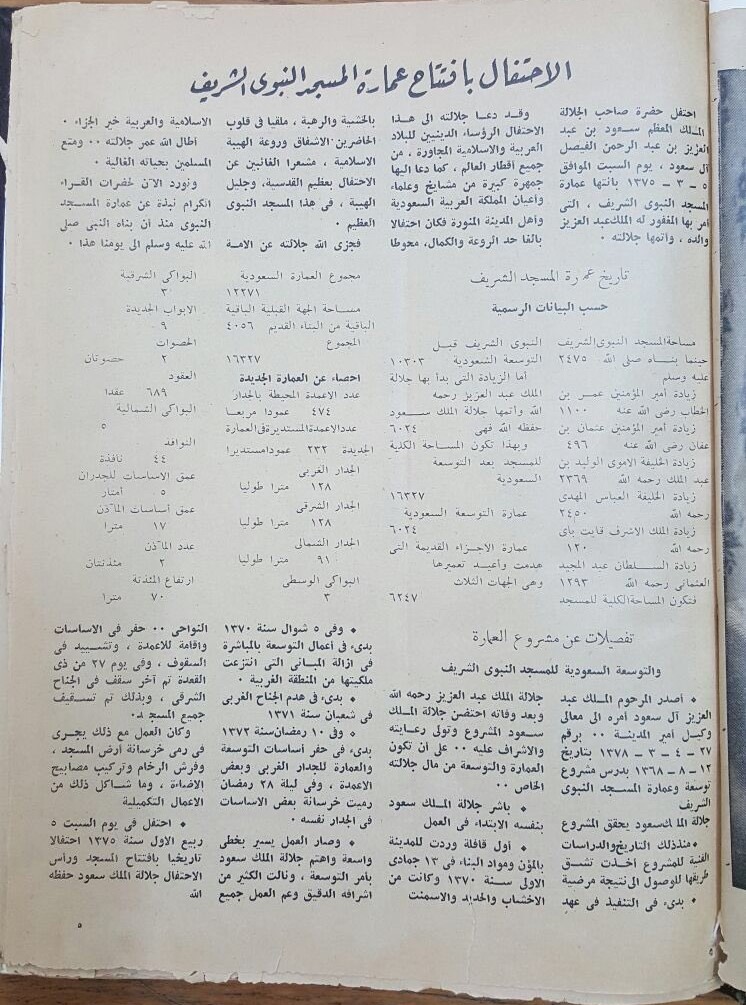 الاحتفال بافتتاح عمارة المسجد النبوى الشريف
احتفل حضرة صاحب الجلالة
الملك المعظم سعود بن عبد
العزيز بن عبد الرحمن الفيصل
آل سعود ، يوم السبت الموافق
٥ – ٣ – ١٣٧٥ بانتهاء عمارة
المسجد النبوى الشريف ، التى
أمر بها المغفور له الملك عبد العزيز
والده ، وأتمها جلالته .
وقد دعا جلالته الى هذا
الاحتفال الرؤساء الدينيين للبلاد
العربية والاسلامية المجاورة ، من
جميع أقطار العالم ، كما دعا اليها
جمهرة كبيرة من مشايخ وعلماء
وأعيان المملكة العربية السعودية
وأهل المدينة المنورة فكان احتفالا
بالغا حد الروعة والكمال ، محوطا
بالخشية والرهبة ، ملقيا فى قلوب
الحاضرين الاشفاق وروعة الهيبة
الاسلامية ، مشعرا الغائبين عن
الاحتفال بعظيم القدسية ، وجليل
الهيبة ، فى هذا المسجد النبوى
العظيم .
فجزى الله جلالته عن الامة
الاسلامية والعربية خير الجزاء .
أطال الله عمر جلالته ٠٠ ومتع
المسلمين بحياته الغالية .
ونورد الآن لحضرات القراء
الكرام نبذة عن عمارة المسجد
النبوى منذ أن بناه النبى صلى
الله عليه وسلم الى يومنا هذا .
تاريخ عمارة المسجد الشريف
حسب البيانات الرسمية
مساحة المسجد النبوى الشريف
حينما بناه صلى الله ٢٤٧٥
عليه وسلم
زيادة أمير المؤمنين عمر بن
الخطاب رضى الله عنه ١١٠٠
زيادة أمير المؤمنين عثمان بن
عفان رضى الله عنه ٤٩٦
زيادة الخليفة الاموى الوليد بن
عبد الملك رحمه الله ٢٣٦٩
زيادة الخليفة العباسى المهدى
رحمه الله ٢٤٥٠
زيادة الملك الاشرف قايت باى
رحمه الله ١٢٠
زيادة السلطان عبد المجيد
العثمانى رحمه الله ١٢٩٣
فتكون المساحة الكلية للمسجد
النبوى الشريف قبل
التوسعة السعودية ١٠٣٠٣
أما الزيادة التى بدأ بها جلالة
الملك عبد العزيز رحمه
الله وأتمها جلالة الملك سعود
حفظه الله فهى ٦٠٢٤
وبهذا تكون المساحة الكلية
للمسجد بعد التوسعة
السعودية
١٦٣٢٧
عمارة التوسعة السعودية
٦٠٢٤
عمارة الاجزاء القديمة التى
هدمت وأعيد تعميرها
وهى الجهات الثلاث
٦٢٤٧
مجموع العمارة السعودية
١٢٢٧١
مساحة الجهة القبلية الباقية
الباقية من البناء القديم ٤٠٥٦
المجموع
١٦٣٢٧
احصاء عن العمارة الجديدة
عدد الاعمدة المحيطة بالجدار
٤٧٤ عمودا مربعا
عدد الاعمدة المستديرة فى العمارة
الجديدة ٢٣٢ عمودا مستديرا
الجدار الغربى
١٢٨ مترا طوليا
الجدار الشرقى
١٢٨ مترا طوليا
الجدار الشمالى
٩١ مترا طوليا
البواكى الوسطى
٣
البواكى الشرقية
٣
الابواب الجديدة
٩
الحصوات
٢ حصوتان
العقود
٦٨٩ عقدا
البواكى الشمالية
٥
النوافذ
٤٤ نافذة
عمق الاساسات للجدران
٥ أمتار
عمق أساسات المآذن
١٧ مترا
عدد المآذن
٢ مئذنتان
ارتفاع المئذنة
٧٠ مترا
تفصيلات عن مشروع العمارة
والتوسعة السعودية للمسجد النبوى الشريف
• أصدر المرحوم الملك عبد
العزيز آل سعود أمره الى معالى
وكيل أمير المدينة ٠٠ برقم
٢٧ – ٤ – ٣ – ١٣٧٨ بتاريخ
١٢ – ٨ – ١٣٦٨ بدرس مشروع
توسعة وعمارة المسجد النبوى
الشريف
جلالة الملك سعود يحقق المشروع
• منذ ذلك التاريخ والدراسات
الفنية للمشروع أخذت تشق
طريقها للوصول الى نتيجة مرضية
• بدىء فى التنفيذ فى عهد
جلالة الملك عبد العزيز رحمه الله
وبعد وفاته احتضن جلالة الملك
سعود المشروع وتولى رعايته
والاشراف عليه ٠٠ على أن تكون
العمارة والتوسعة من مال جلالته
الخاص ٠٠
• باشر جلالة الملك سعود
بنفسه الابتداء فى العمل
• أول قافلة وردت للمدينة
بالمؤن ومواد البناء فى ١٣ جمادى
الاولى سنة ١٣٧٠ وكانت من
الاخشاب والحديد والاسمنت
• وفى ٥ شوال سنة ١٣٧٠
بدىء فى أعمال التوسعة بالمباشرة
فى ازالة المبانى التى انتزعت
ملكيتها من المنطقة الغربية .
• بدىء فى هدم الجناح الغربى
فى شعبان سنة ١٣٧١
• وفى ١٠ رمضان سنة ١٣٧٢
بدىء فى حفر أساسات التوسعة
والعمارة للجدار الغربى وبعض
الاعمدة ، وفى ليلة ٢٨ رمضان
رميت خرسانة بعض الاساسات
فى الجدار نفسه .
• وصار العمل يسير بخطى
واسعة واهتم جلالة الملك سعود
بأمر التوسعة ، ونالت الكثير من
اشرافه الدقيق وعم العمل جميع
النواحى ٠٠ حفر فى الاساسات
واقامة للاعمدة ، وتشييد فى
السقوف ، وفى يوم ٢٧ من ذى
القعدة تم آخر سقف فى الجناح
الشرقى ، وبذلك تم تسقيف
جميع المسجد .
وكان العمل مع ذلك يجرى
فى رمى خرسانة أرض المسجد ،
وفرش الرخام وتركيب مصابيح
الاضاءة ، وما شاكل ذلك من
الاعمال التكميلية
• احتفل فى يوم السبت ٥
ربيع الاول سنة ١٣٧٥ احتفالا
تاريخيا بافتتاح المسجد ورأس
الاحتفال جلالة الملك سعود حفظه
الله
٥